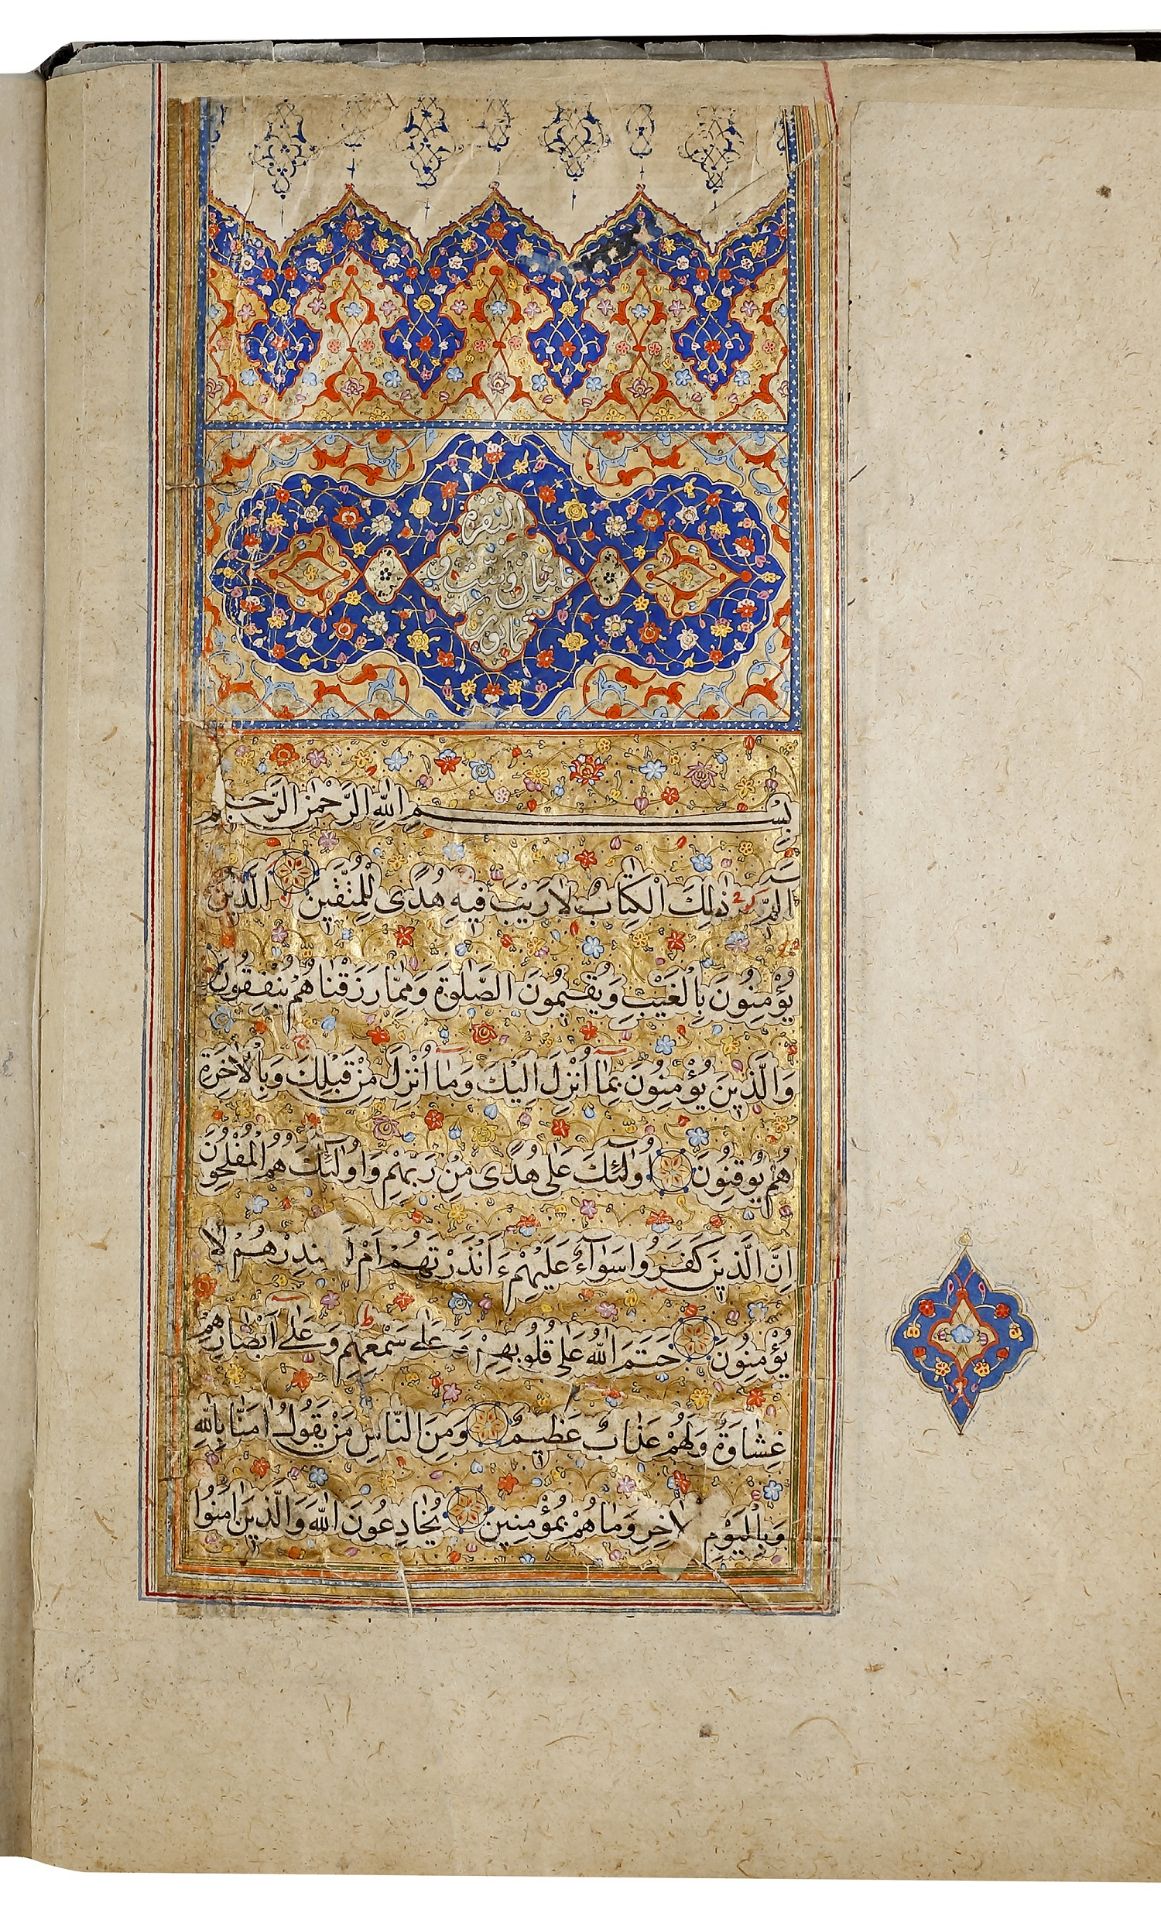 البقرة
مایتان وست و
بِسْمِ اللهِ الرَّحْمٰنِ الرَّحيمِ
الٓمٓ ذٰلِكَ الْكِتٰابُ لٰا رَيْبَ فيهِ هُدًى لِلْمُتَّقينَ الَّذينَ
يُؤْمِنُونَ بِالْغَيْبِ وَيُقيمُونَ الصَّلٰوةَ وَمِمّٰا رَزَقْنٰاهُمْ يُنْفِقُونَ
وَالَّذينَ يُؤْمِنُونَ بِمٰٓا اُنْزِلَ اِلَيْكَ وَمٰٓا اُنْزِلَ مِنْ قَبْلِكَ وَبِالْاٰخِرَةِ
هُمْ يُوقِنُونَ اُولٰٓئِكَ عَلٰى هُدًى مِنْ رَبِّهِمْ وَاُولٰٓئِكَ هُمُ الْمُفْلِحُونَ
اِنَّ الَّذينَ كَفَرُوا سَوٰآءٌ عَلَيْهِمْ ءَاَنْذَرْتَهُمْ اَمْ لَمْ تُنْذِرْهُمْ لٰا
يُؤْمِنُونَ خَتَمَ اللهُ عَلٰى قُلُوبِهِمْ وَعَلٰى سَمْعِهِمْ وَعَلٰٓى اَبْصٰارِهِمْ
غِشٰاوَةٌ وَلَهُمْ عَذٰابٌ عَظيمٌ وَمِنَ النّٰاسِ مَنْ يَقُولُ اٰمَنّٰا بِاللهِ
وَبِالْيَوْمِ الْاٰخِرِ وَمٰا هُمْ بِمُؤْمِنينَ يُخٰادِعُونَ اللهَ وَالَّذينَ اٰمَنُوا